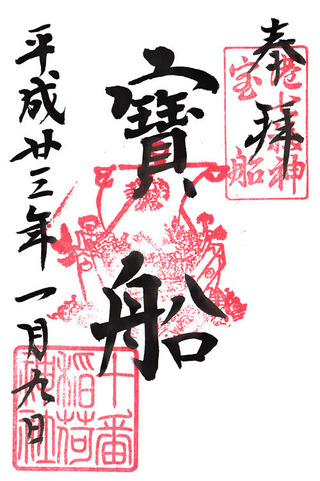 奉拝
港七福神
宝船
寶船
平成廿三年一月九日
十番
稲荷
神社